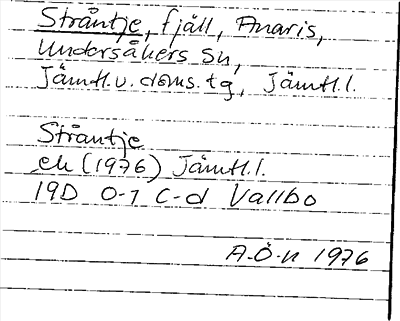 Stråntje, fjäll, Anaris,
Undersåkers sn,
Jämtl.v. doms.tg, Jämtl.l.
Stråntje
ek (1976) Jämtl.l.
19D 0-1 c-d Vallbo
A.Ö-n 1976